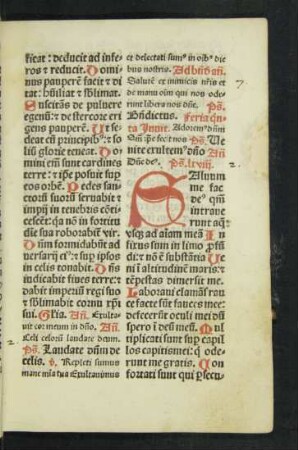 ficat: deducit ad infe
ros ⁊ reducit. Domi
nus pauperē facit ⁊ di
tat: hūiliat ⁊ sblimat.
Suscitās de puluere
egenū: ⁊ de stercore eri
gens pauperē. Ut se
deat cū principibꝰ: ⁊ so
liū glorie teneat. Do
mini em̄ sunt cardines
terre: ⁊ posuit sup
eos orbē. Pedes san
ctorū suorū seruabit ⁊
impij in tenebris cōti
cescēt: qꝛ nō in fortitu
dīe sua roborabit̄ vir.
Dnm̄ formidabūt ad
uersarij eiꝰ: ⁊ sup ipsos
in celis tonabit. Dns̄
iudicabit fines terre: ⁊
dabit imperiū regi suo
⁊ sblimabit cornu xp̄i
sui. Glia. Añ. Exulta
uit cor meum in dño. Añ.
Celi celorū laudate deum.
Ps̄. Laudate dn̄m de
celis. Repleti sumus
mane mīa tua Exultauimus
et delectati sumꝰ in oībꝰ die
bus nostris. Ad Bn̄dictꝰ añ.
Salutē ex inimicis nr̄is et
de manu oīm qui nos ode
runt libera nos dn̄e. Ps̄.
Bn̄dictus. Feria qn
ta Inuit. Adoremꝰ dn̄m
Qm̄ ip̄se fecit nos Ps̄. Ue
nite exultemꝰ dn̄o Añ
Dn̄e deꝰ. Ps̄. lxviij.
Saluum
me fac
deꝰ qm̄
intraue
runt aq̄ ⁊
vsq̄ ad aīam meā In
fixus sum in limo p̄fū
di: ⁊ nō ē substātia Ue
ni ī altitudinē maris: ⁊
tēpestas dimersit me.
Laboraui clamās rau
ce facte sūt fauces mee:
defecerūt oculi mei dū
spero ī deū meū. Mul
tiplicati sunt sup capil
los capitis mei: q̄ ode
runt me gratis. Con
fortati sunt qui p̄secu